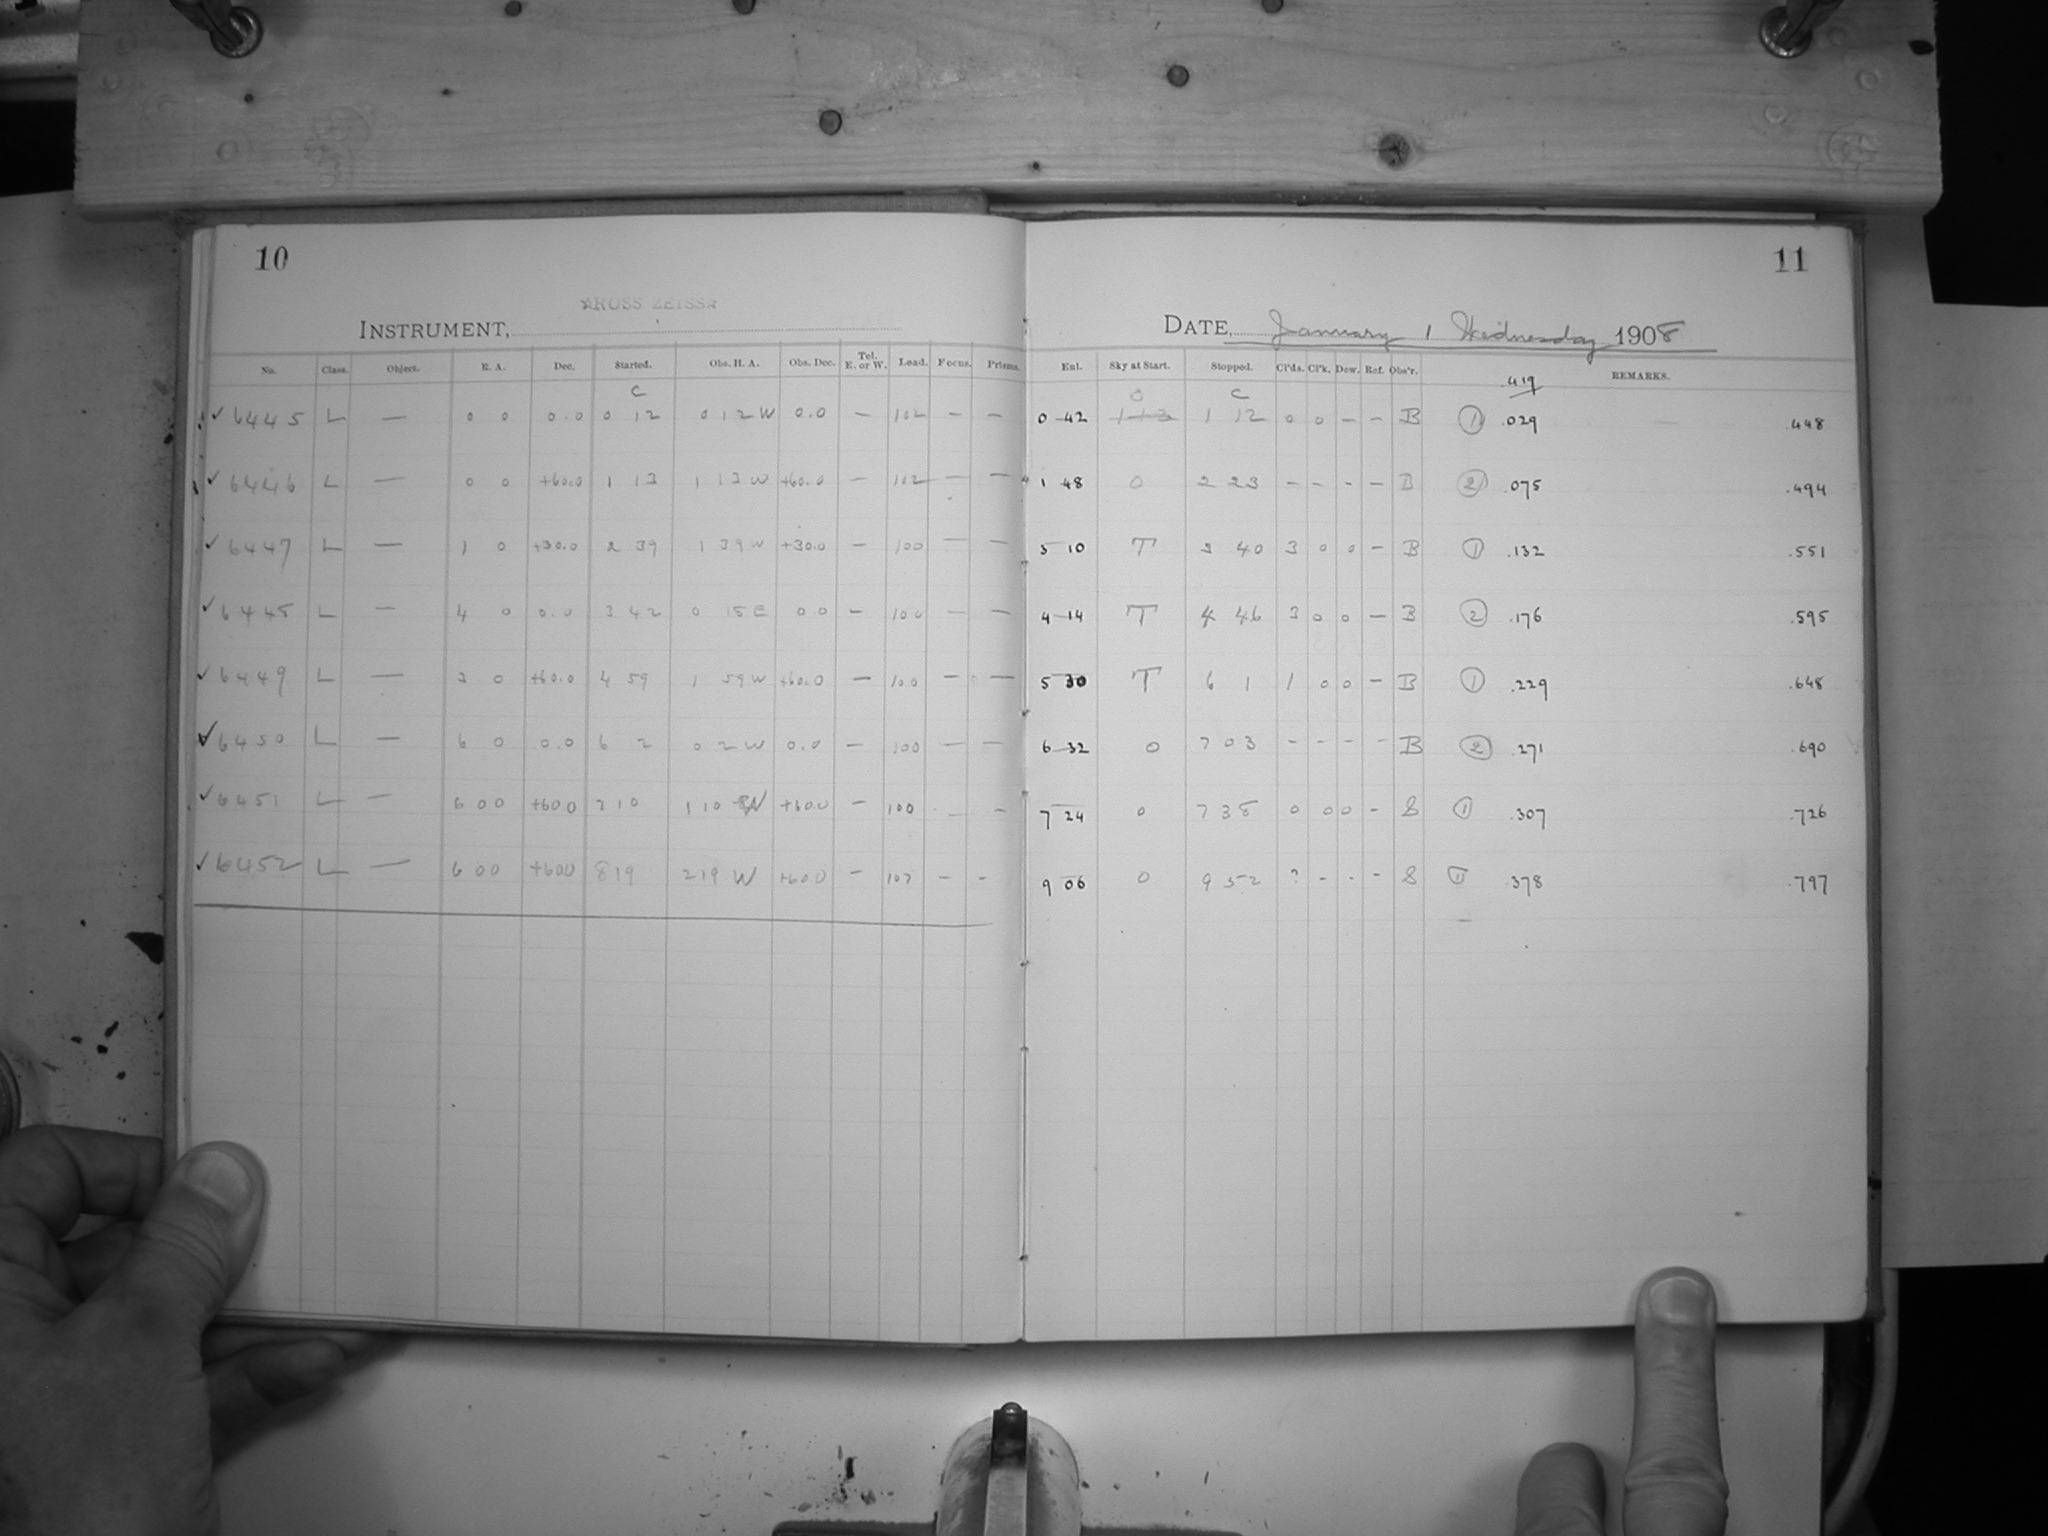 10
11
☆ROSS ZEISS☆
INSTRUMENT,
DATE, January 1 Wednesday 1908
No. Class. Object. R. A. Dec. Started. Obs. H. A. Obs. Dec. Tel. E. or W. Lead. Focus. Prisms. Enl. Sky at Start. Stopped. Cl'ds. Cl'k. Dew. Ref. Obs'r. REMARKS.
C O C .419
✓ 6445 L — 0 0 0.0 0 12 0 12 W 0.0 — 102 — — 0 42 1 12 0 0 — — B ① .029 .448
✓ 6446 L — 0 0 +60.0 1 13 1 13 W +60.0 — 102 — — 1 48 0 2 23 – – – – B ② .075 .494
✓ 6447 L — 1 0 +30.0 2 39 1 39 W +30.0 — 100 — — 3 10 T 3 40 3 0 0 – B ① .132 .551
✓ 6445 L — 4 0 0.0 3 42 0 15 E 0.0 — 100 — — 4 14 T 4 46 3 0 0 — B ② .176 .595
✓ 6449 L — 3 0 +60.0 4 59 1 59 W +60.0 — 100 — — 5 30 T 6 1 1 0 0 – B ① .229 .648
✓ 6450 L — 6 0 0.0 6 2 0 2 W 0.0 — 100 — — 6 32 0 7 03 – – – – B ② .271 .690
✓ 6451 L — 6 00 +60 0 7 10 1 10 W +60.0 — 100 — 7 24 0 7 38 0 0 0 – S ① .307 .726
✓ 6452 L — 6 00 +60 0 8 19 2 19 W +60 0 — – - 9 06 0 9 52 ? - - - S ① .378 .797